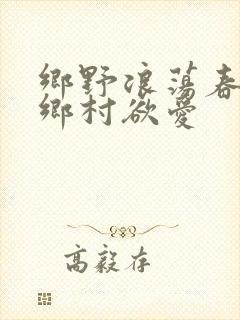 鄉野浪蕩春
鄉村欲愛
高毅存